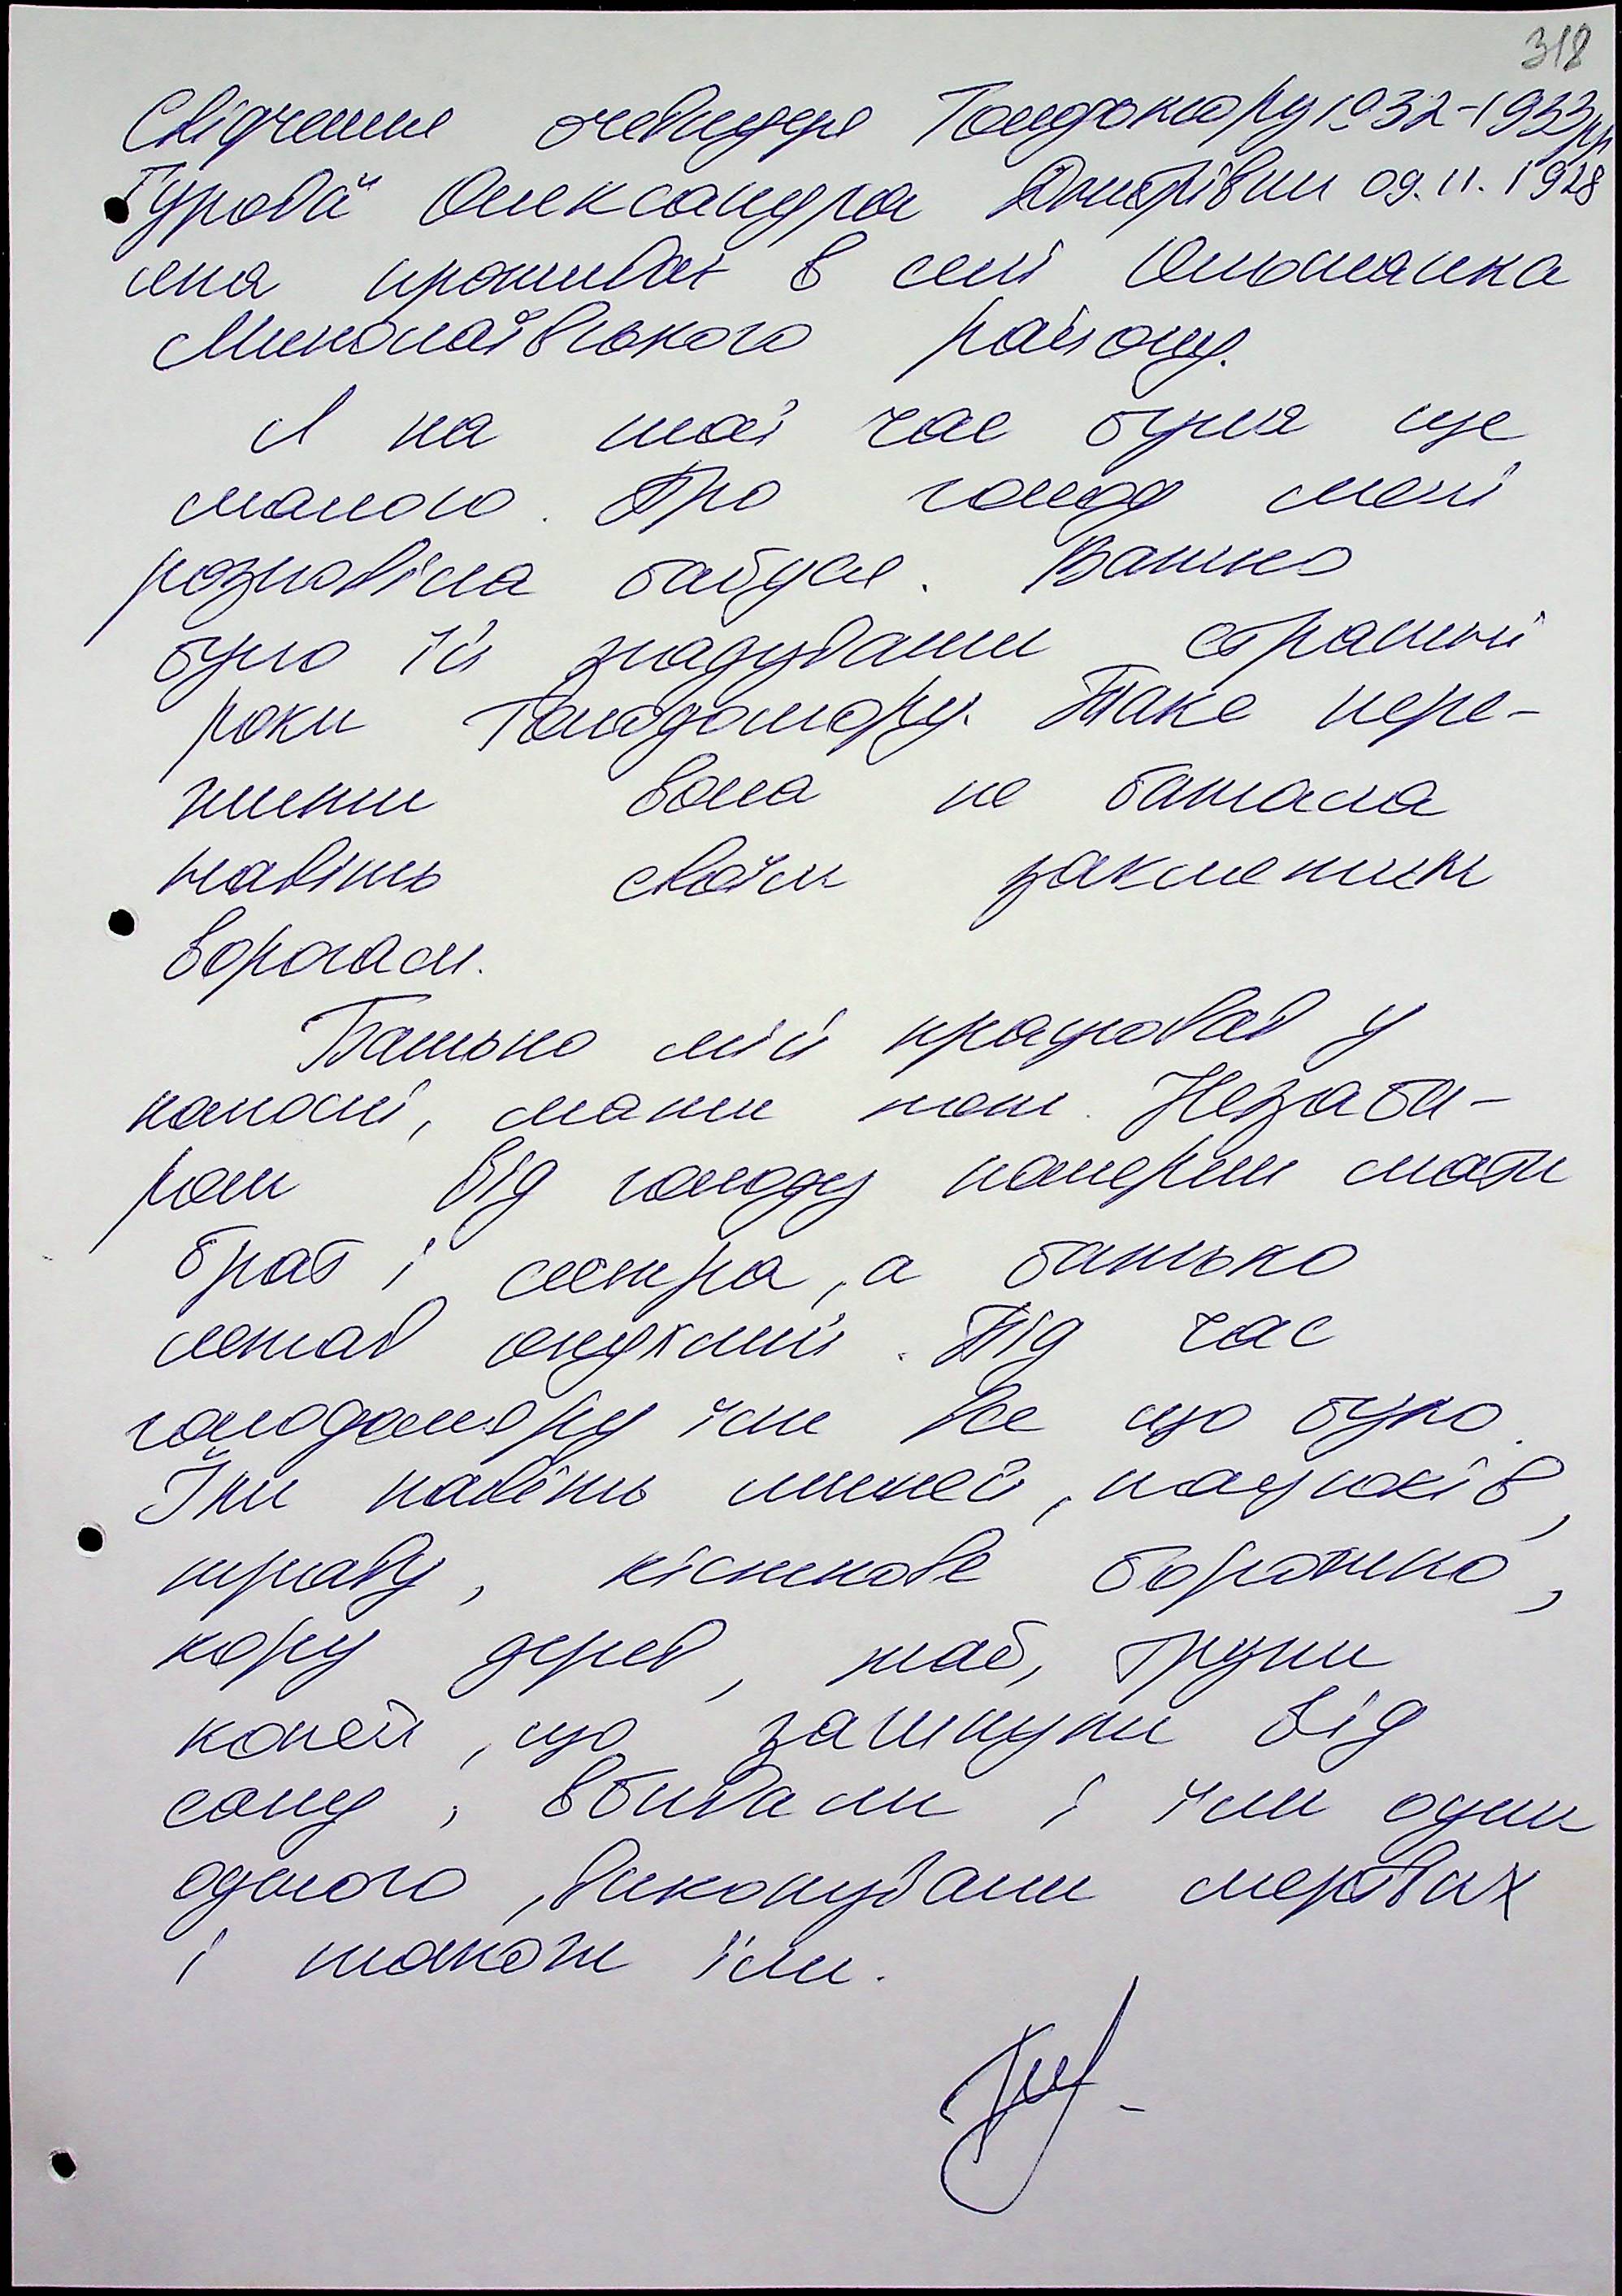 318
Свідчення очевидця Голодомору 1932-1933 рр
Гурової Олександра Дмитрівни 09.11.1928
яка проживає в селі Ольшанка
Миколаївського району.
Я на той час була ще
малою. Про голод мені
розповіла бабуся. Важко
було їй згадувати страшні
роки Голодомору. Таке пере-
жити вона не бажала
навіть своїм заклятим
ворогам.
Батько мій працював у
колгоспі, мати теж. Незаба-
ром від голоду померли мати
брат і сестра, а батько
лежав опухлий. Під час
голодомору їли все що було.
Їли навіть мишей, пацюків,
траву, кісткове борошно,
кору дерев, жаб, трупи
коней, що загинули від
сапу, вбивали і їли один
одного, викопували мертвих
і також їли.